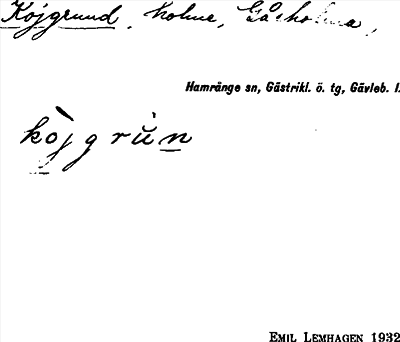 Kojgrund, holme, Gåsholma,
Hamränge sn, Gästrikl. ö. tg, Gävleb. l.
kòjgrŭn
EMIL LEMHAGEN 1932